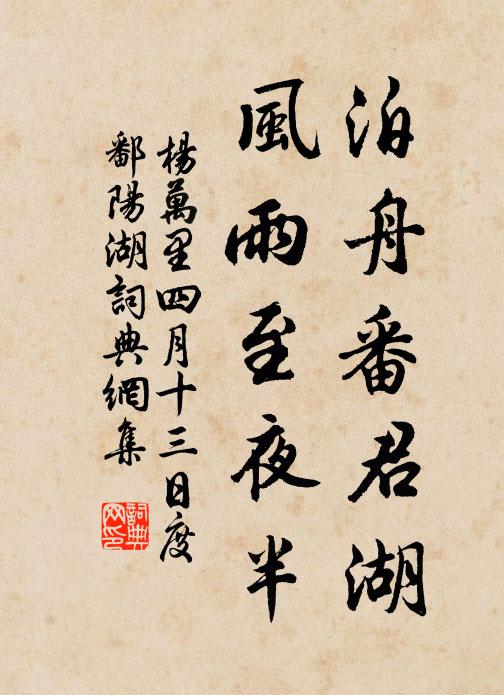 泊舟番君湖
風雨至夜半
楊萬里四月十三日度
鄱陽湖詞典網集
詞典
网印